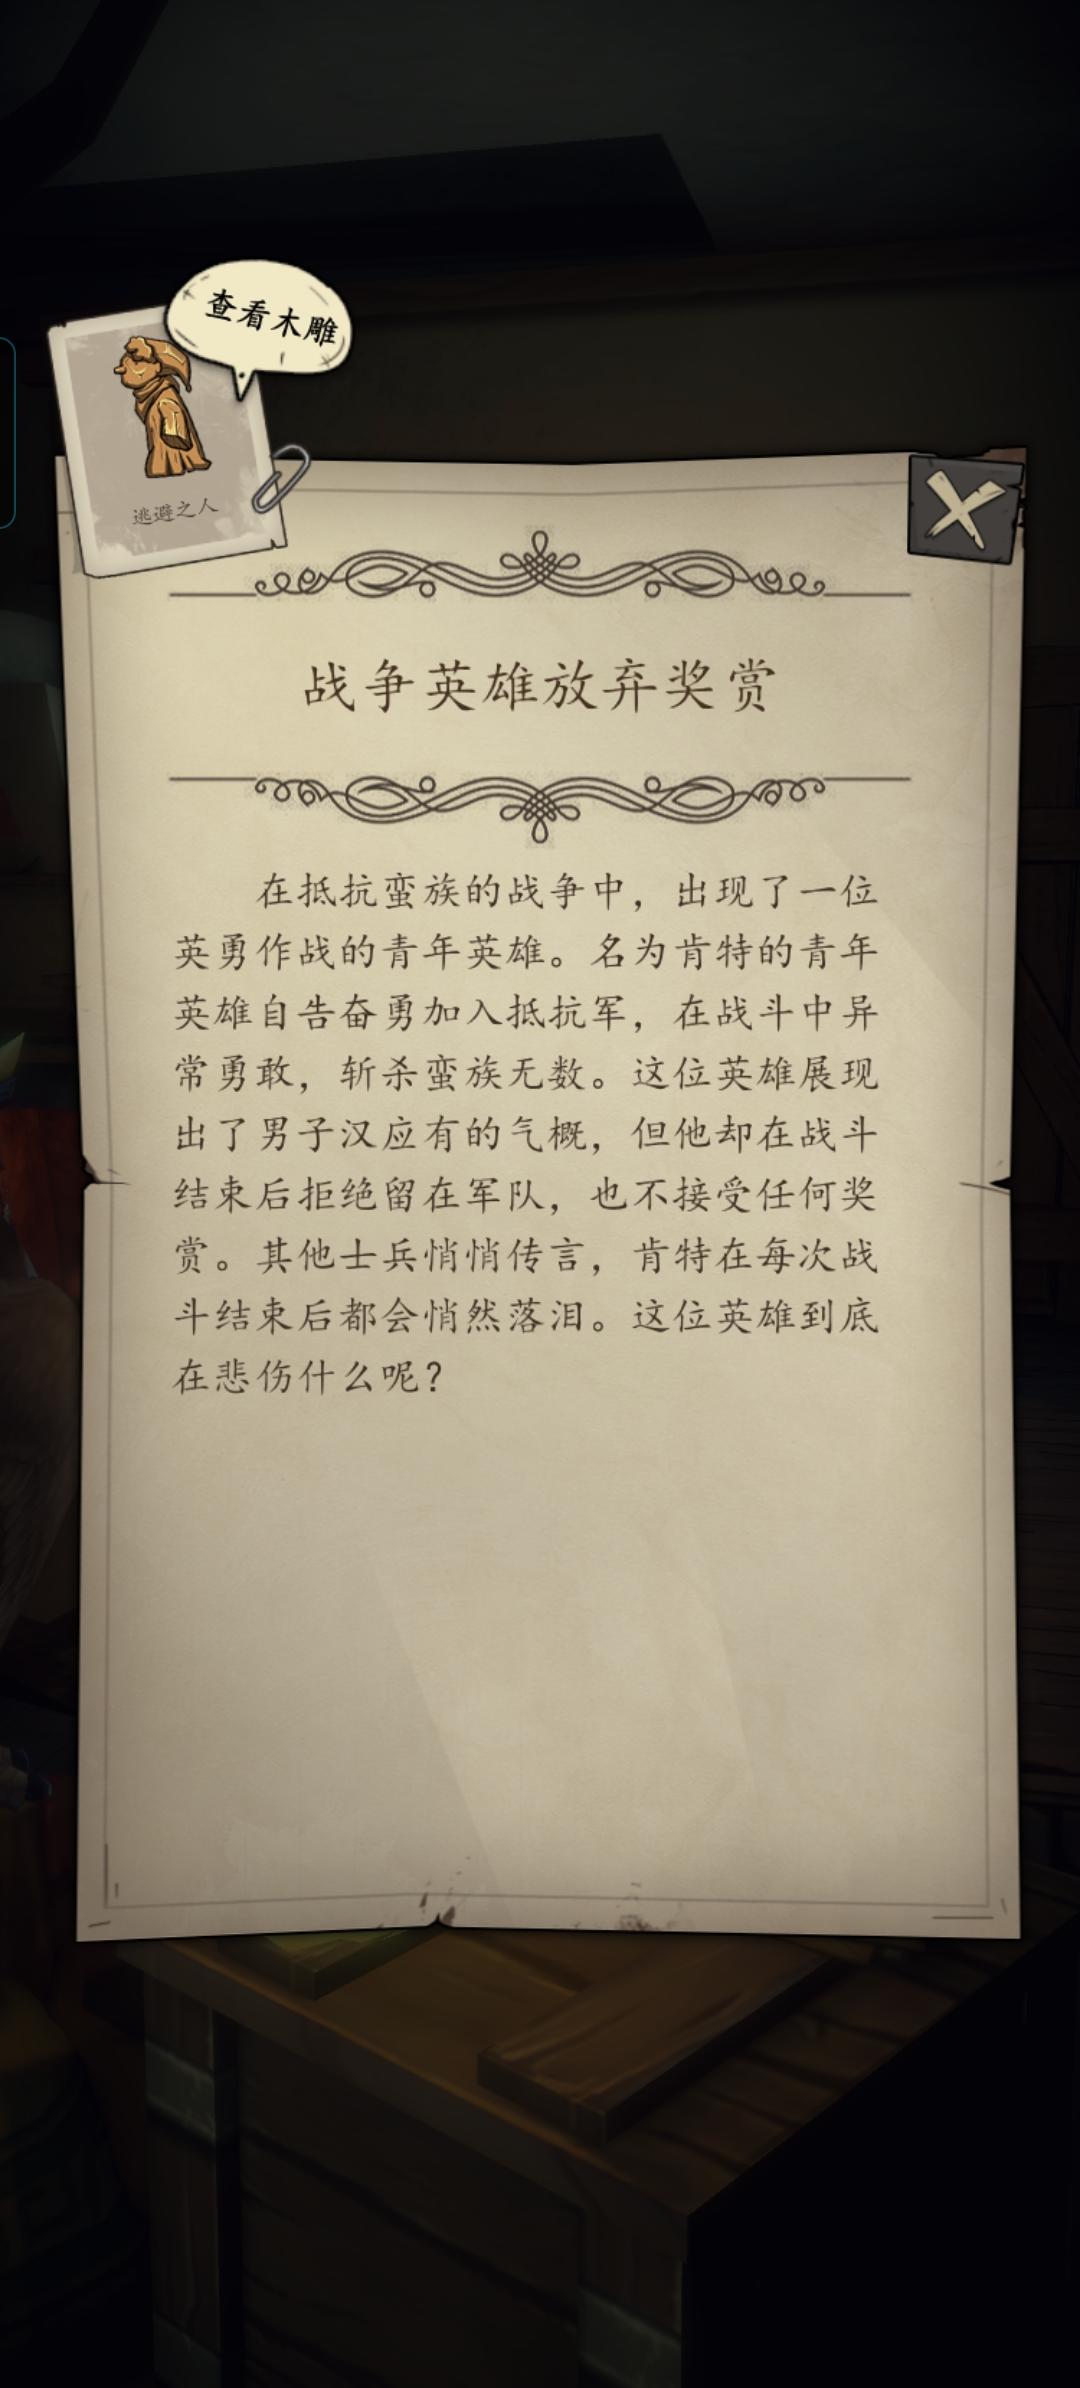 查看木雕
逃避之人
战争英雄放弃奖赏
在抵抗蛮族的战争中，出现了一位
英勇作战的青年英雄。名为肯特的青年
英雄自告奋勇加入抵抗军，在战斗中异
常勇敢，斩杀蛮族无数。这位英雄展现
出了男子汉应有的气概，但他却在战斗
结束后拒绝留在军队，也不接受任何奖
赏。其他士兵悄悄传言，肯特在每次战
斗结束后都会悄然落泪。这位英雄到底
在悲伤什么呢？